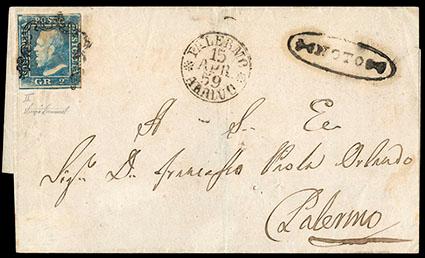 POSTA
GR 2
PALERMO
15
APR
59
ARRIVO
NOTO
A S. E.
Sigr. Dn. Francesco Paolo Orlando
Palermo